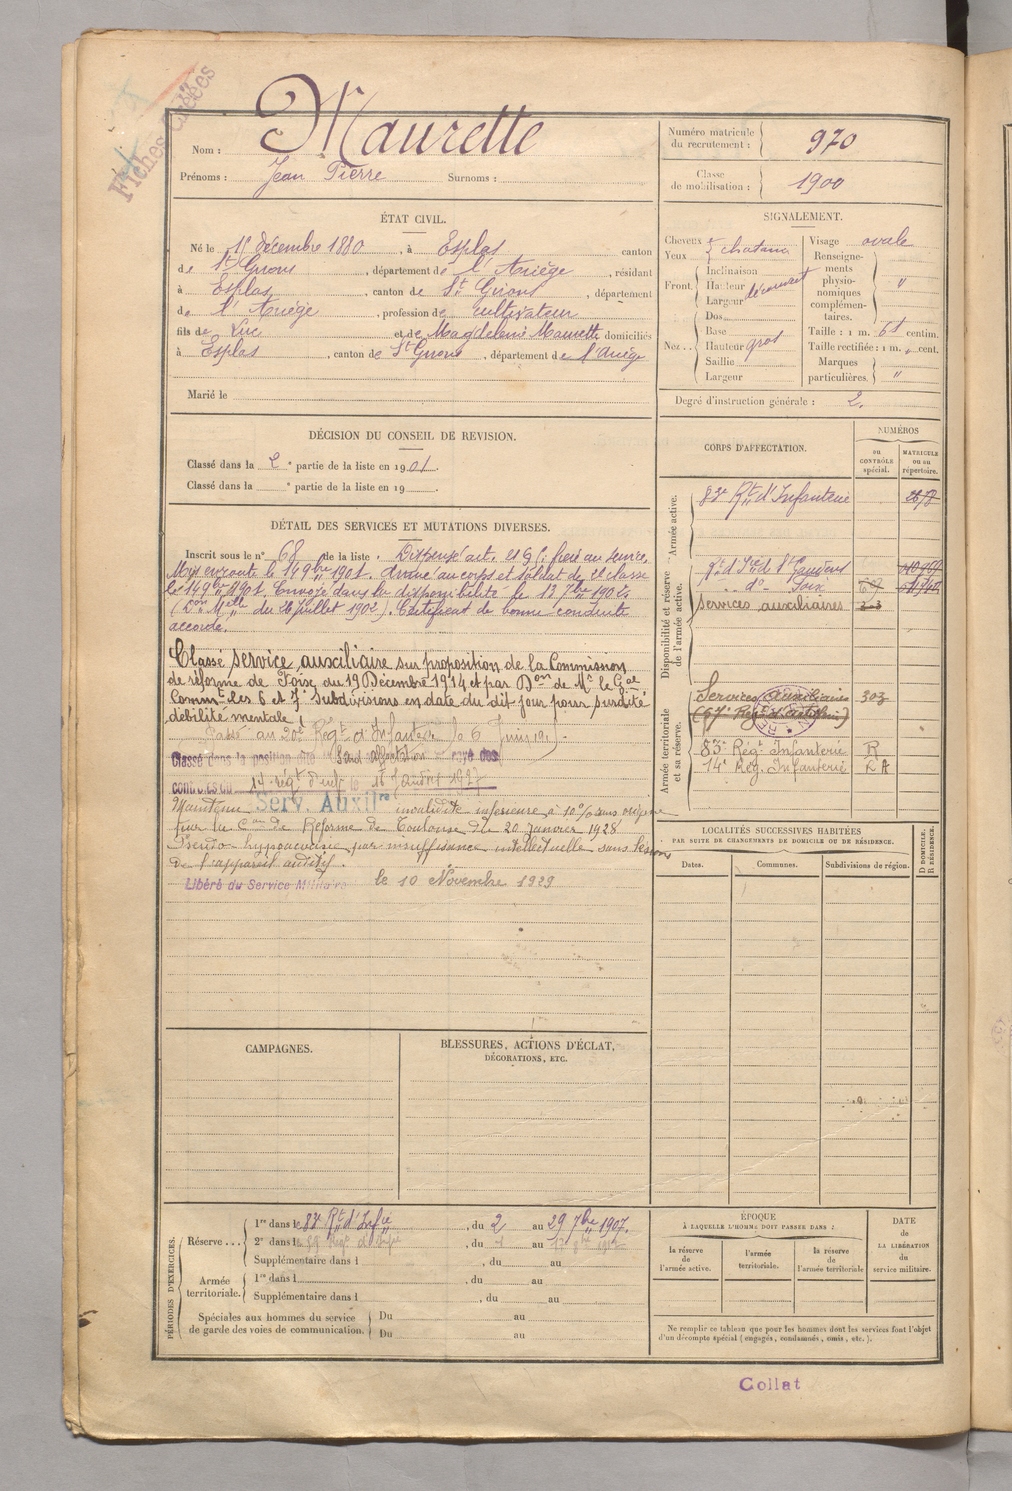 Fiches Créées
Nom : Maurette
Prénoms : Jean Pierre Surnoms :
Numéro matricule du recrutement : 970
Classe de mobilisation : 1900
ÉTAT CIVIL.
Né le décembre 1880, à Esplas canton
de St Girons, département de l'Ariège, résidant
à Esplas, canton de St Girons, département
de l'Ariège, profession de cultivateur
fils de Luc et de Magdeleine Maurette domiciliés
à Esplas, canton de St Girons, département de l'Ariège
Marié le
SIGNALEMENT.
Cheveux
Yeux chatains
Front. Inclinaison
Hauteur
Largeur découvert
Nez.. Dos
Base
Hauteur gros
Saillie
Largeur
Visage ovale
Renseignements physionomiques complémentaires. "
Taille : 1 m. 61 centim.
Taille rectifiée : 1 m. " cent.
Marques particulières. "
Degré d'instruction générale : 2.
DÉCISION DU CONSEIL DE REVISION.
Classé dans la 2e partie de la liste en 1901.
Classé dans la e partie de la liste en 19
CORPS D'AFFECTATION.
NUMÉROS
au CONTRÔLE spécial.
MATRICULE ou au répertoire.
Armée active.
83e Rt d'Infanterie
Disponibilité et réserve de l'armée active.
Rt d'Irie de St Gaudens
do Foix
Services auxiliaires
Armée territoriale et sa réserve.
Services Auxiliaires 303
83e Régt Infanterie R
14e Rég. Infanterie
DÉTAIL DES SERVICES ET MUTATIONS DIVERSES.
Inscrit sous le no 68 de la liste. Dispensé art. 21 frère au service.
Mis en route le 14 9bre 1901. Arrivé au corps et soldat de 2e classe
le 14 9bre 1901. Envoyé dans la disponibilité le
du 26 juillet 1902). Certificat de bonne conduite
accordé.
Classé service auxiliaire sur proposition de la Commission
de réforme de Foix du 19 Décembre 1914 et par Don de Mr le Gal
Commt les 6 et 7e Subdivisions en date du dit jour pour surdité
débilité mentale.
Passé au 20e Régt d'Infanterie le 6 Juin
Classé dans la position dite Sans affectation rayé des
contrôles du 14e régt d'inf le 1927
Maintenu Serv. Auxilre invalidité inférieure à 10% sans origine
par la Con de Réforme de Toulouse du 20 Janvier 1928
Pseudo-hypoacousie par insuffisance intellectuelle sans lésions
de l'appareil auditif.
Libéré du Service Militaire le 10 Novembre 1929
LOCALITÉS SUCCESSIVES HABITÉES
PAR SUITE DE CHANGEMENTS DE DOMICILE OU DE RÉSIDENCE.
Dates. Communes. Subdivisions de région.
D DOMICILE. R RÉSIDENCE.
CAMPAGNES.
BLESSURES, ACTIONS D'ÉCLAT,
DÉCORATIONS, ETC.
PÉRIODES D'EXERCICES.
Réserve...
1re dans le 83e Rt d'Infie, du 2 au 29 7bre 1907.
2e dans le, du au
Supplémentaire dans l, du au
Armée territoriale.
1re dans l, du au
Supplémentaire dans l, du au
Spéciales aux hommes du service
de garde des voies de communication.
Du au
Du au
ÉPOQUE
À LAQUELLE L'HOMME DOIT PASSER DANS :
la réserve de l'armée active.
l'armée territoriale.
la réserve de l'armée territoriale
DATE
de
LA LIBÉRATION
du
service militaire.
Ne remplir ce tableau que pour les hommes dont les services font l'objet
d'un décompte spécial (engagés, condamnés, omis, etc.).
Collat